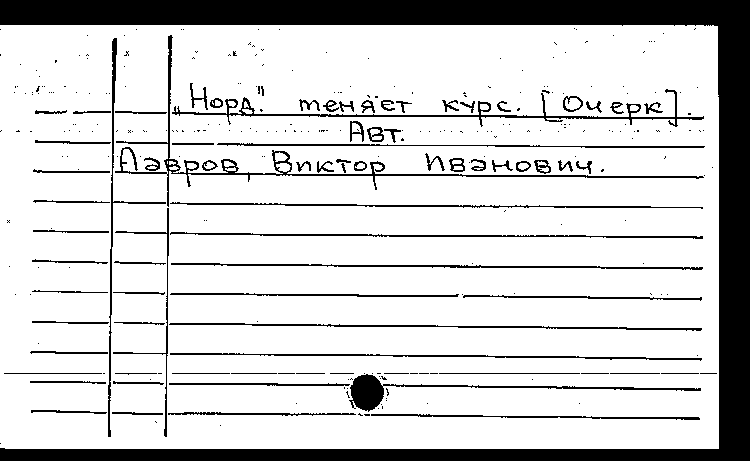 „Норд" меняет курс. [Очерк].
Авт.
Лавров, Виктор Иванович.